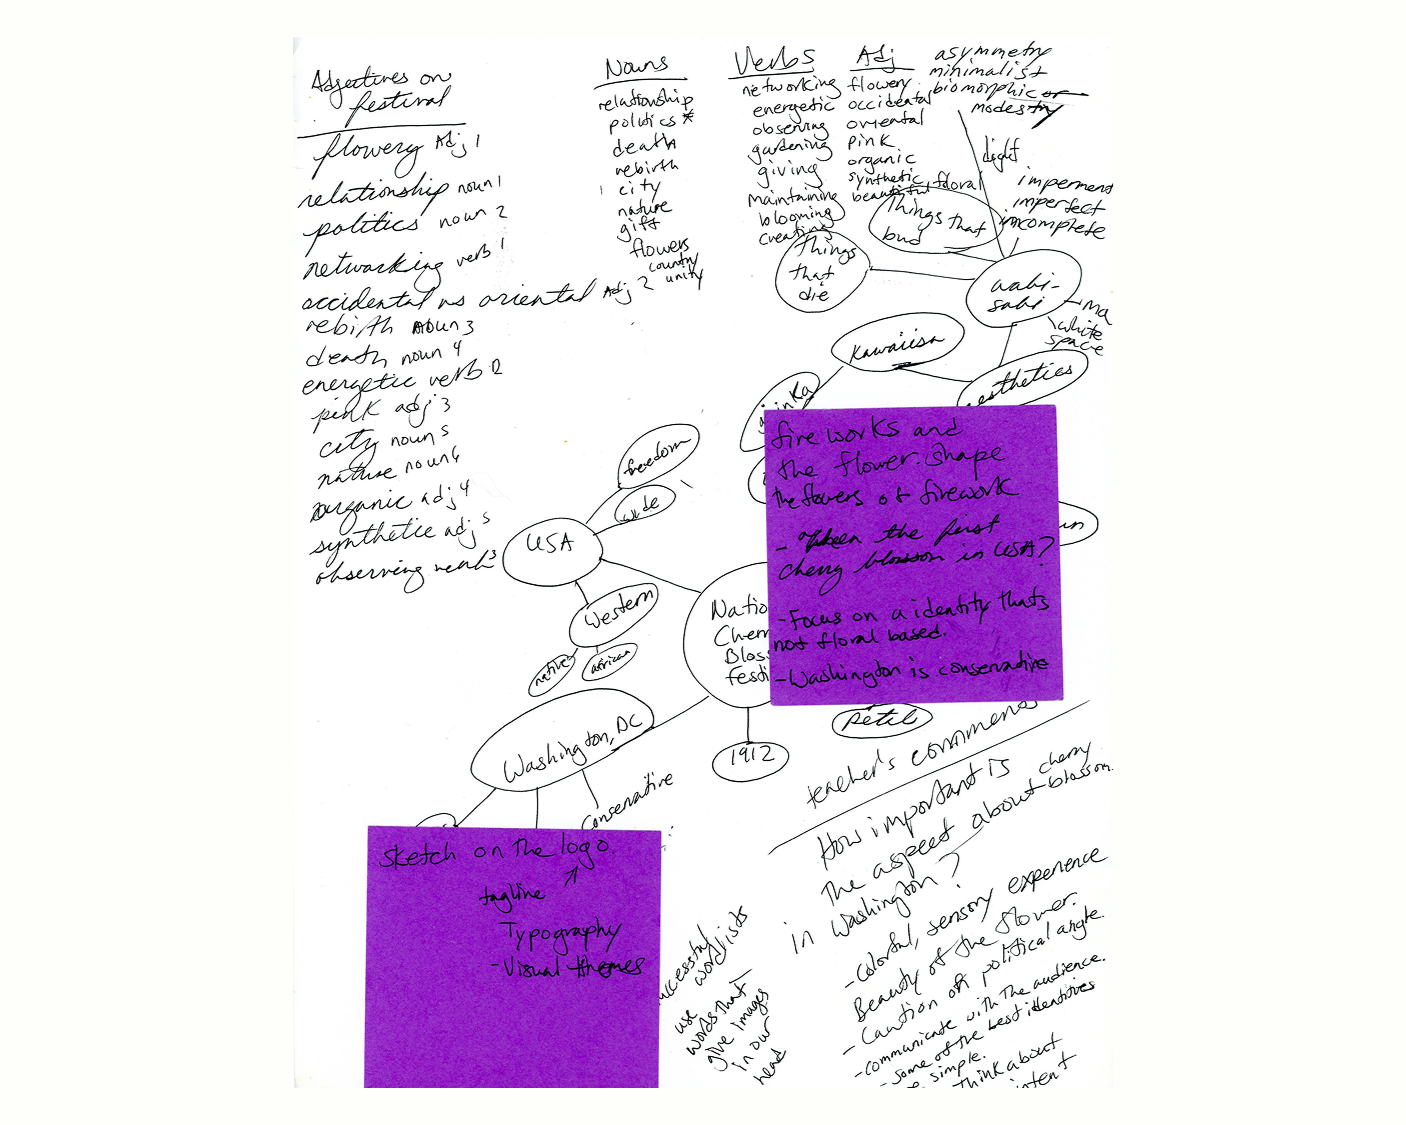 Adjectives on
festival
flowery Adj 1
relationship noun 1
politics noun 2
networking verb 1
occidental vs oriental Adj 2
rebirth noun 3
death noun 4
energetic verb 2
pink adj 3
city noun 5
nature noun 6
organic adj 4
synthetic adj 5
observing verb 3
Nouns
relationship
politics *
death
rebirth
city
nature
gift
flowers
country
unity
Verbs
networking
energetic
observing
gardening
giving
maintaining
blooming
creating
Adj
flowery
occidental
oriental
pink
organic
synthetic
beautiful floral
asymmetry
minimalist
biomorphic or
modesty
light
imperment
imperfect
imcomplete
Things that
bud
Things
that
die
wabi-
sabi
ma
white
space
Kawaiisa
fireworks and
the flower shape
the flowers of firework
- When the first
cherry blossom in USA?
- Focus on a identity thats
not floral based.
- Washington is conservative
freedom
USA
Western
natives
african
Washington, DC
conservative
1912
Petil
sketch on the logo.
tagline
Typography
- Visual themes
word lists
use
words that
give images
in our
head
teacher's comments
How important is
the aspect about cherry blossom
in Washington?
- Colorful, sensory experience
Beauty of the flower.
- Caution on political angle.
- communicate with the audience.
- some of the best identities
simple.
think about